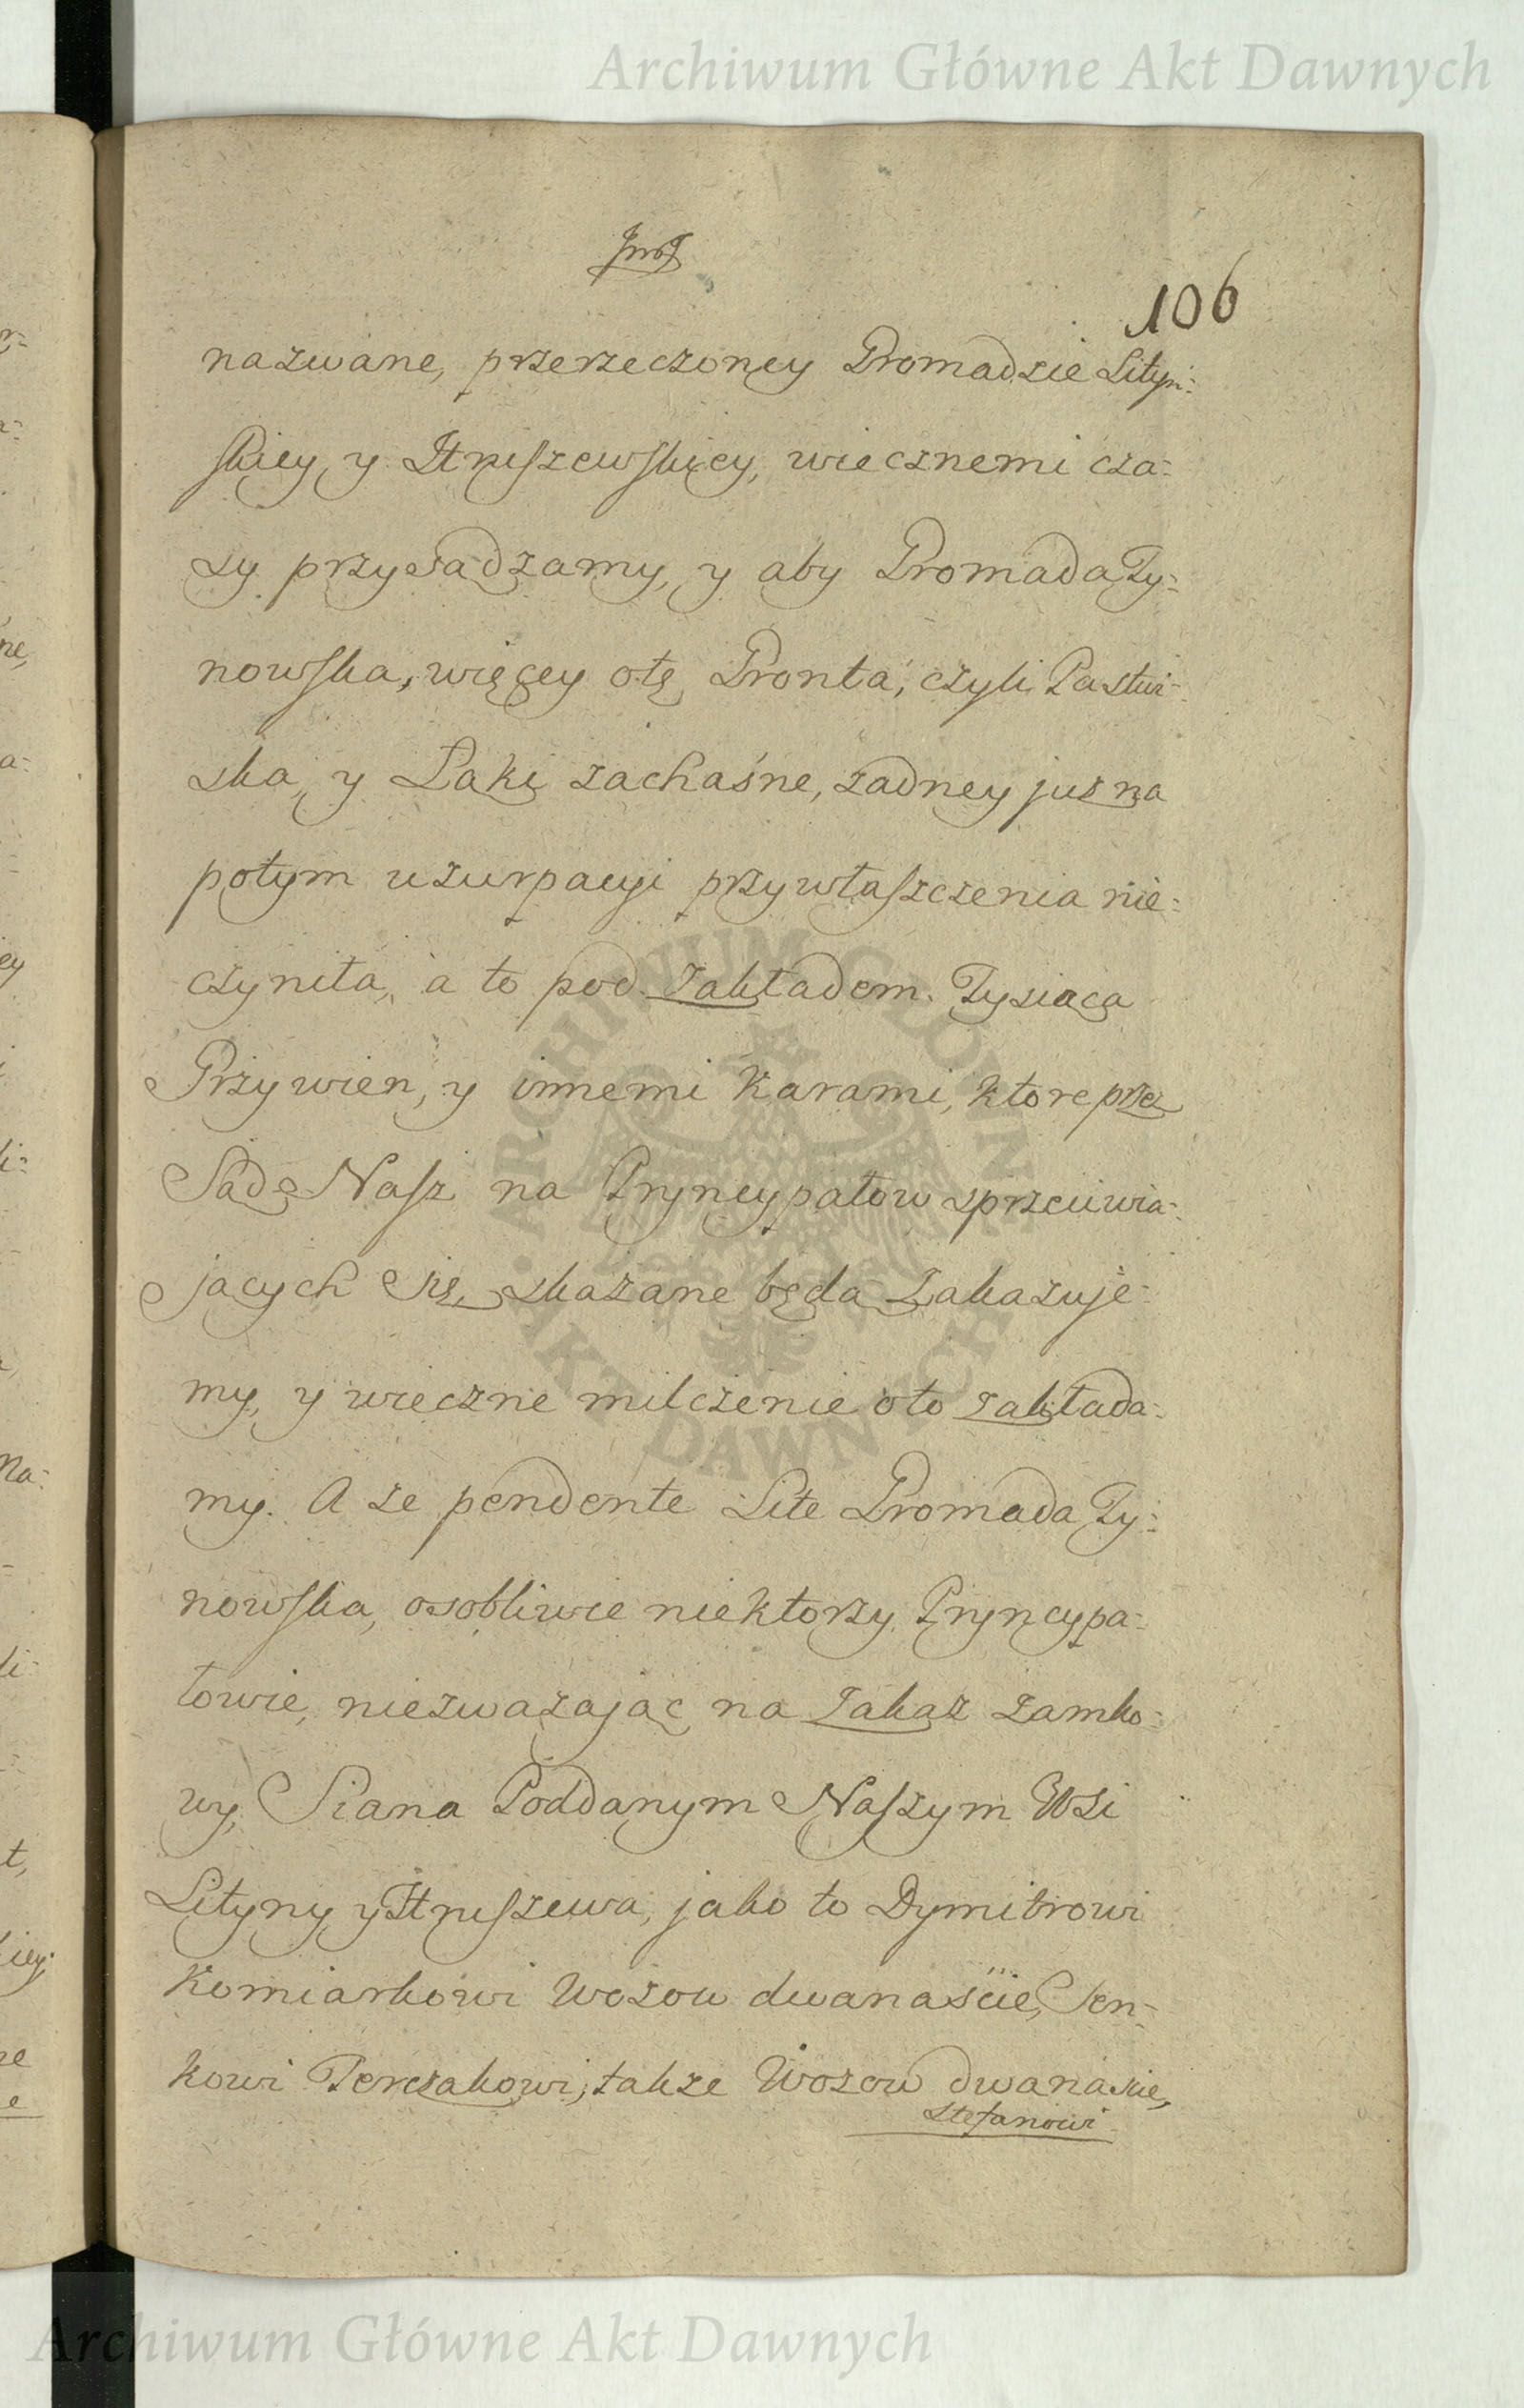 Archiwum Główne Akt Dawnych
106
nazwane, przerzeczoney Gromadzie Lityn:
skiey, y Stryszewskiey, wiecznemi cza:
sy przysadzamy, y aby Gromada Ty:
nowska, więcey otę Gronta, czyli Pastwi:
ska, y Łąki zachaśne, zadney jusz na
potym uzurpacyi przywłaszczenia nie:
czyniła, a to pod Zakładem Tysiąca
Grzywien, y innemi Karami, ktore przez
Sąd Nasz na Pryncypałow sprzeciwia:
jących się, skazane będą Zakazuje:
my, y wieczne milczenie oto zakłada:
my. A ze pendente Lite Gromada Ty:
nowska, osobliwie niektorzy Pryncypa:
łowie, niezwazając na Zakaz zamko:
wy, Siana Poddanym Naszym Wsi
Lityny y Stryszewa, jako to Dymitrowi
Komiarkowi Wozow dwanaście, Sen:
kowi Perczakowi, takze Wozow dwanaście,
Stefanowi
ARCHIWUM GŁÓWNE AKT DAWNYCH
Archiwum Główne Akt Dawnych